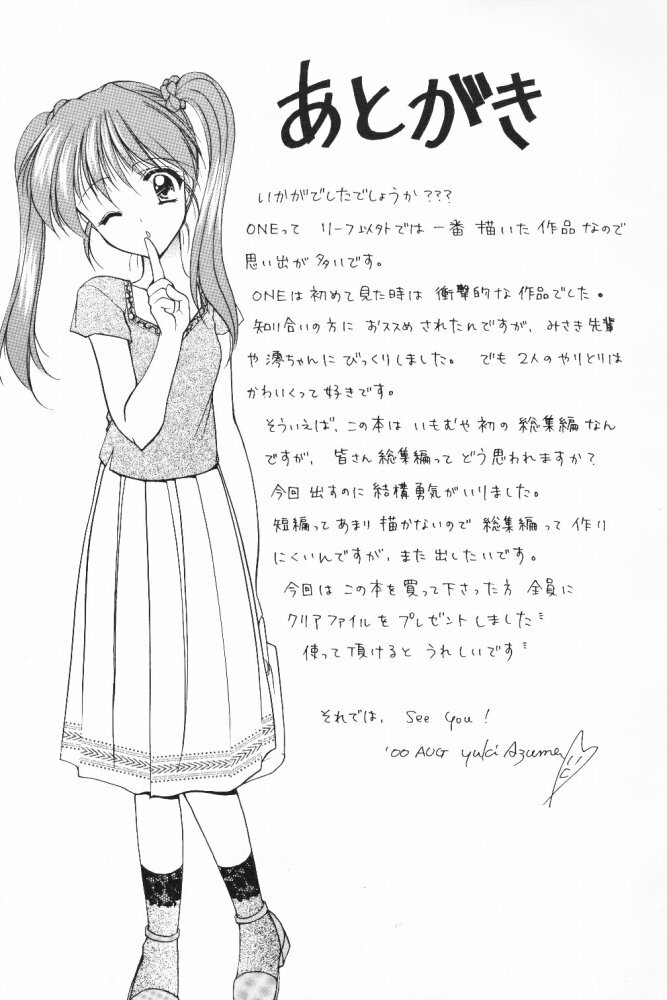 あとがき
いかがでしたでしょうか???
ONEって リーフ以外では 一番 描いた 作品 なので
思い出が 多いです。
ONEは 初めて 見た 時は 衝撃的な 作品でした。
知り合いの方に おススメ されたんですが、みさき先輩
や 澪ちゃんに びっくりしました。 でも 2人の やりとりは
かわいくって 好きです。
そういえば、この本は いもむや 初の 総集編 なん
ですが、皆さん 総集編って どう思われますか?
今回 出すのに 結構 勇気が いりました。
短編って あまり 描かないので 総集編って 作り
にくいんですが、また 出したいです。
今回は この本を 買って下さった方 全員に
クリアファイルを プレゼント しました〃
使って頂けると うれしいです〃
それでは、 See you!
'00 AUG yuki Azuma